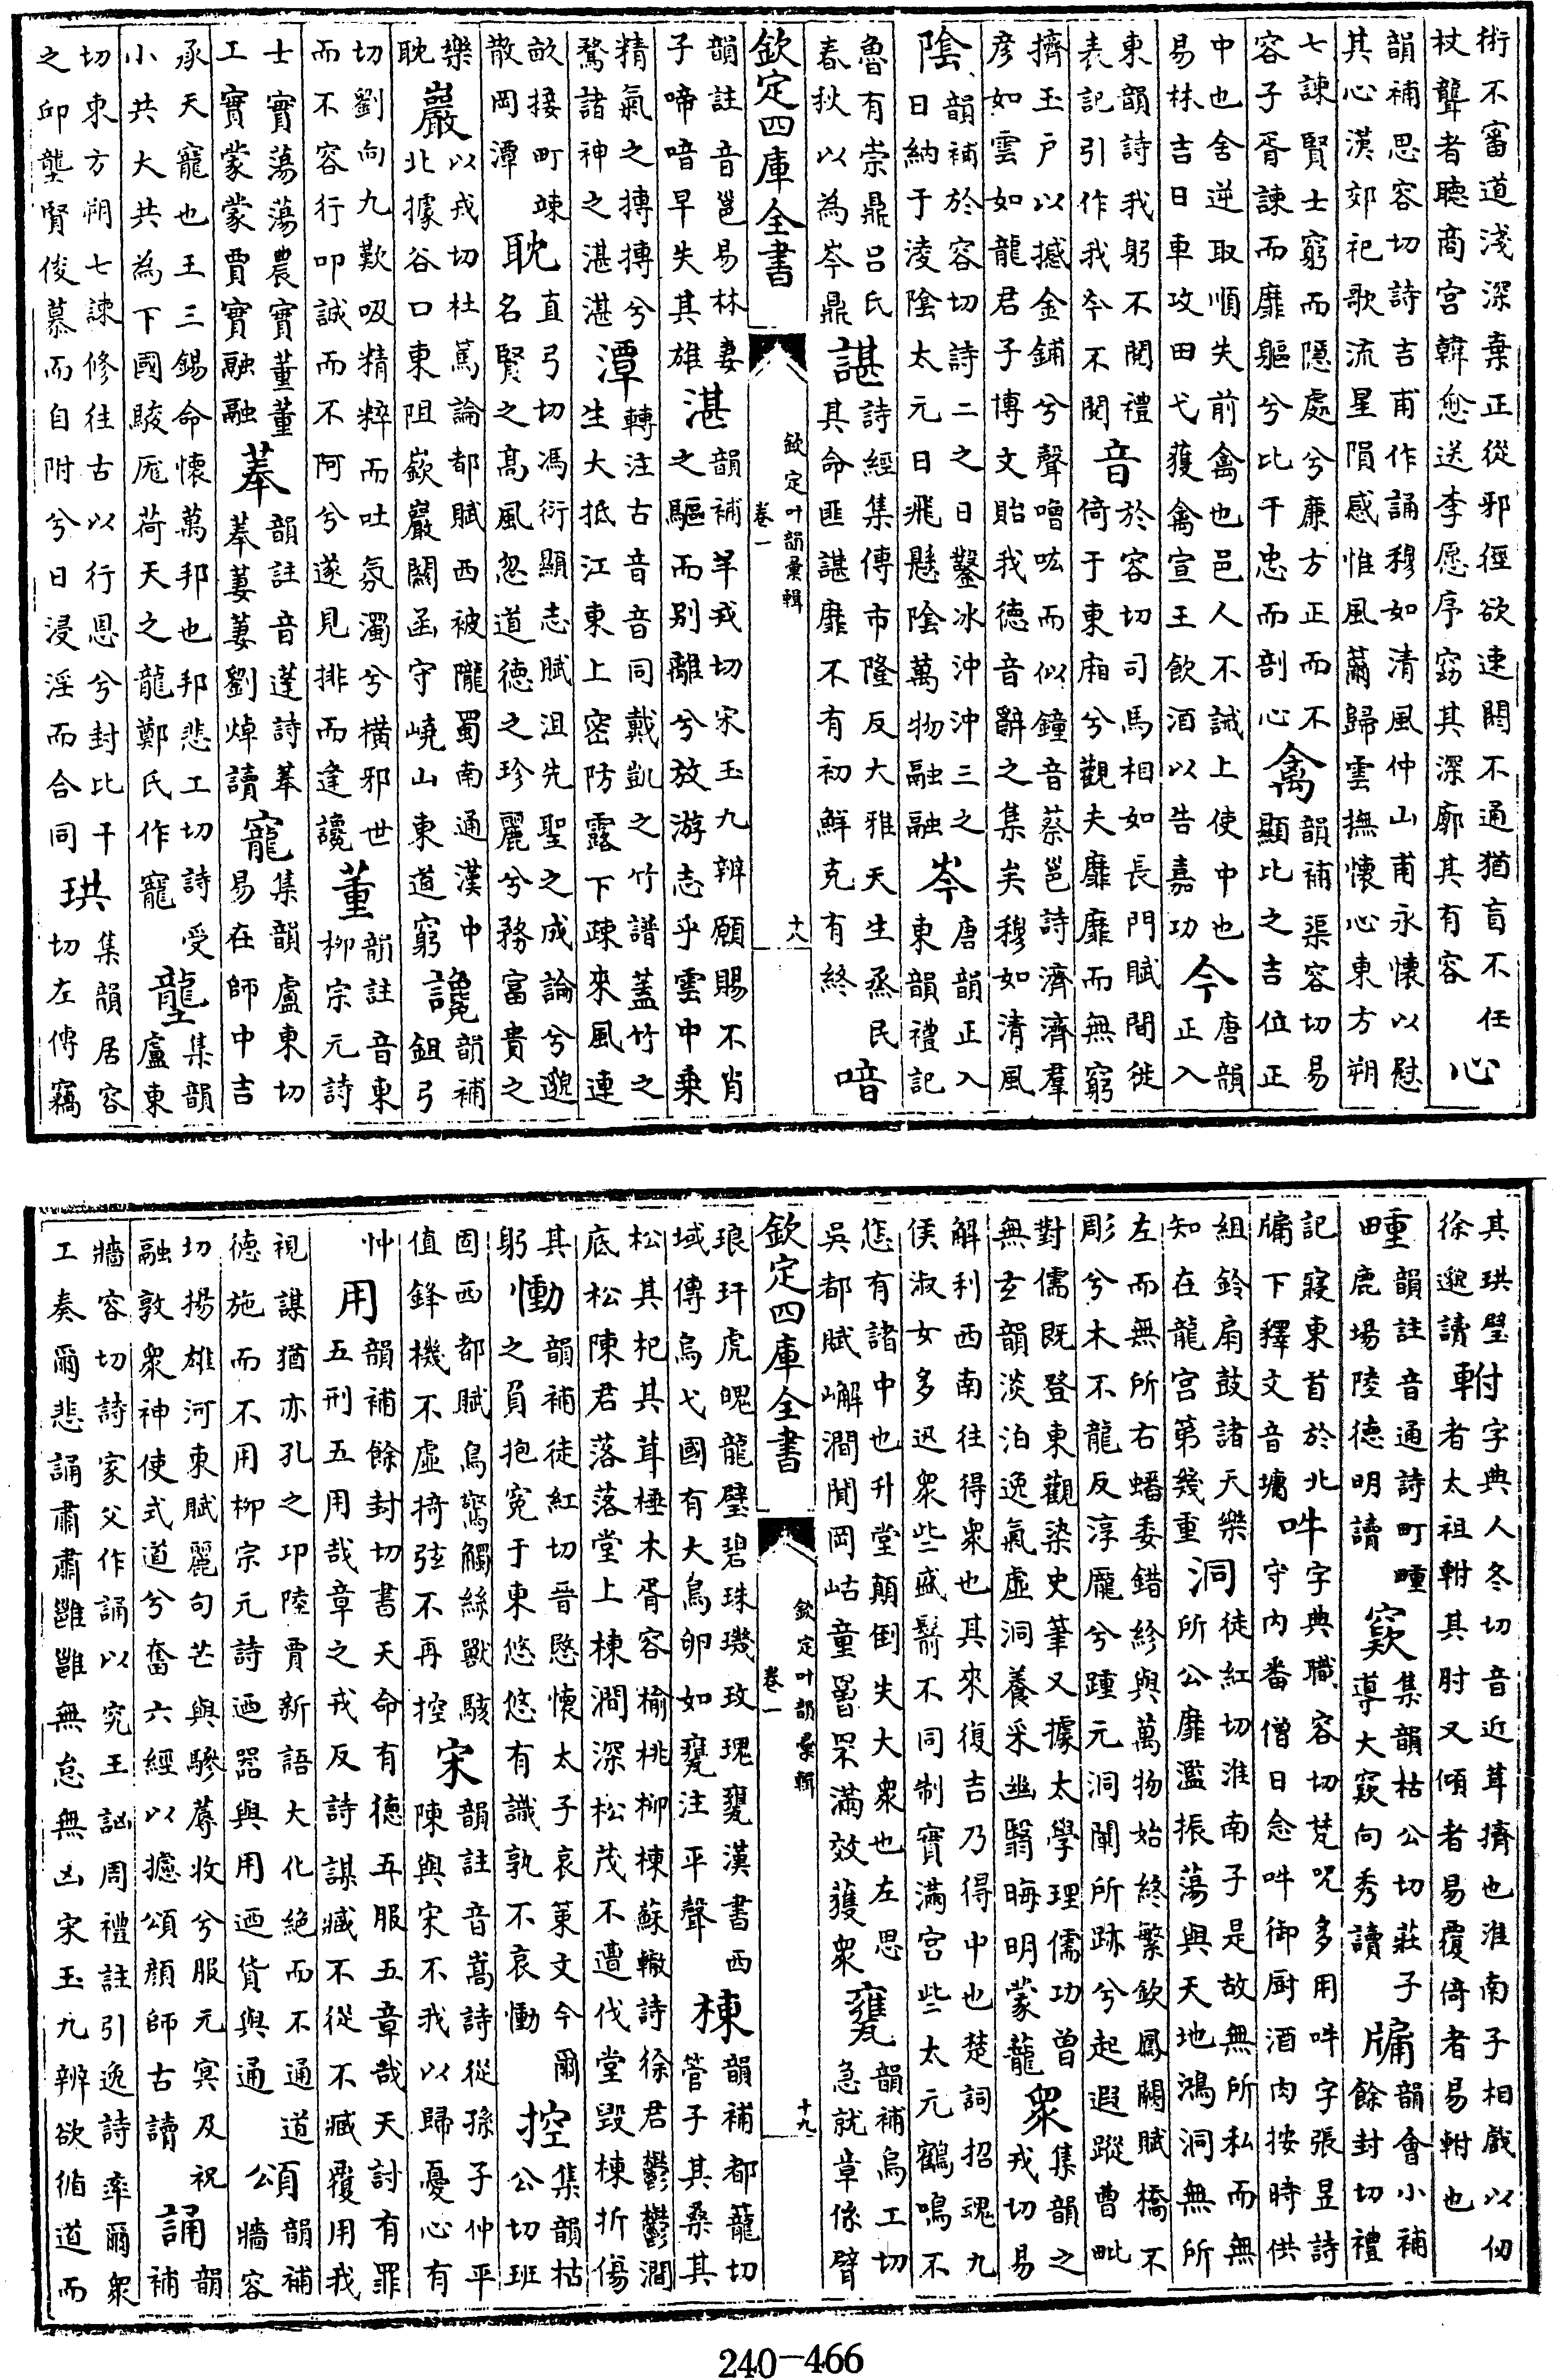 術不審道淺深棄正從邪徑欲速閧不通猶盲不任杖聾者聽商宫韓愈送李愿序窈其深廓其有容心
韻補思容切詩吉甫作誦穆如清風仲山甫永懷以慰其心漢郊祀歌流星隕感惟風薾歸雲撫懷心東方朔
七諫賢士窮而隱處兮亷方正而不容子胥諫而靡軀兮比干忠而剖心禽韻補渠容切易顯比之吉位正
中也舍逆取順失前禽也邑人不誡上使中也易林吉日車攻田弋獲禽宣王飲酒以告嘉功今唐韻正入
東韻詩我躬不閲禮表記引作我今不閲音於容切司馬相如長門賦間徙倚于東廂兮觀夫靡靡而無窮
擠玉戶以撼金鋪兮聲噌吰而似鐘音蔡邕詩濟濟羣彦如雲如龍君子博文貽我德音辭之集矣穆如清風
陰韻補於容切詩二之日鑿冰沖沖三之日納于淩陰太元日飛懸陰萬物融融岑唐韻正入東韻禮記
魯有崇鼎吕氏春秋以為岑鼎諶詩經集傳市隆反大雅天生烝民其命匪諶靡不有初鮮克有終喑
欽定四庫全書 欽定叶韻彙輯 卷一 十八
韻註音邕易林妻子啼喑早失其雄湛韻補羊戎切宋玉九辨願賜不肖之軀而别離兮放游志乎雲中乗
精氣之摶摶兮騖諸神之湛湛潭轉注古音音同戴凱之竹譜蓋竹之生大抵江東上密防露下疎來風連
畝接町竦散岡潭耽直弓切馮衍顯志賦沮先聖之成論兮邈名賢之高風忽道德之珍麗兮務富貴之
樂耽巖以戎切杜篤論都賦西被隴蜀南通漢中北據谷口東阻嶔巖關函守嶢山東道窮讒韻補鉏弓
切劉向九歎吸精粹而吐氛濁兮横邪世而不容行叩誠而不阿兮遂見排而逢讒董韻註音東柳宗元詩
士實蕩蕩農實董董工實蒙蒙賈實融融菶韻註音蓬詩菶菶萋萋劉焯讀寵集韻盧東切易在師中吉
承天寵也王三錫命懷萬邦也邦悲工切詩受小共大共為下國駿厖荷天之龍鄭氏作寵壟集韻盧東
切東方朔七諫修往古以行恩兮封比干之邱壟賢俊慕而自附兮日浸淫而合同珙集韻居容切左傳竊
其珙璧徐邈讀軵字典人冬切音近茸擠也淮南子相戲以仞者太祖軵其肘又傾者易覆倚者易軵也
畽韻註音通詩町畽鹿場陸德明讀窾集韻枯公切莊子導大窾向秀讀牗韻會小補餘封切禮
記寢東首於北牗下釋文音墉吽字典職容切梵呪多用吽字張昱詩守内番僧日念吽御厨酒肉按時供
組鈴扇鼓諸天樂知在龍宫第幾重洞徒紅切淮南子是故無所私而無所公靡濫振蕩與天地鴻洞無所
左而無所右蟠委錯紾與萬物始終繁欽鳳闕賦橋不彫兮木不龍反淳龎兮踵元洞闡所跡兮起遐蹤曹毗
對儒既登東觀染史筆又據太學理儒功曽無玄韻淡泊逸氣虚洞養采幽翳晦明蒙龍衆集韻之戎切易
解利西南往得衆也其來復吉乃得中也楚詞招魂九侯淑女多迅衆些盛鬋不同制實滿宫些太元鶴鳴不
有諸中也升堂顛倒失大衆也左思吳都賦嶰澗岡岵童罾罘滿效獲衆甕韻補烏工切急就章係臂
欽定四庫全書 欽定叶韻彙輯 卷一 十九
琅玕虎魄龍璧碧珠璣玫瑰甕漢書西域傳烏弋國有大鳥卵如甕注平聲棟韻補都籠切管子其桑其
松其杞其茸棰木胥容榆桃柳棟蘇轍詩徐君鬱鬱澗底松陳君落落堂上棟澗深松茂不遭伐堂毀棟折傷
其躬慟韻補徒紅切晉愍懷太子哀䇿文今爾之負抱寃于東悠悠有識孰不哀慟控集韻枯公切班
固西都賦鳥驚觸絲獸駭值鋒機不虚掎弦不再控宋韻註音嵩詩從孫子仲平陳與宋不我以歸憂心有
忡用韻補餘封切書天命有德五服五章哉天討有罪五刑五用哉章之戎反詩謀臧不從不臧覆用我
視謀猶亦孔之卭陸賈新語大化絶而不通道德施而不用柳宗元詩迺器與用迺貨與通頌韻補牆容
切揚雄河東賦麗句芒與驂蓐收兮服元冥及祝融敦衆神使式道兮奮六經以攄頌顔師古讀誦韻補
牆容切詩家父作誦以究王訩周禮註引逸詩率爾衆工奏爾悲誦肅肅雝雝無怠無凶宋玉九辨欲循道而
240-466